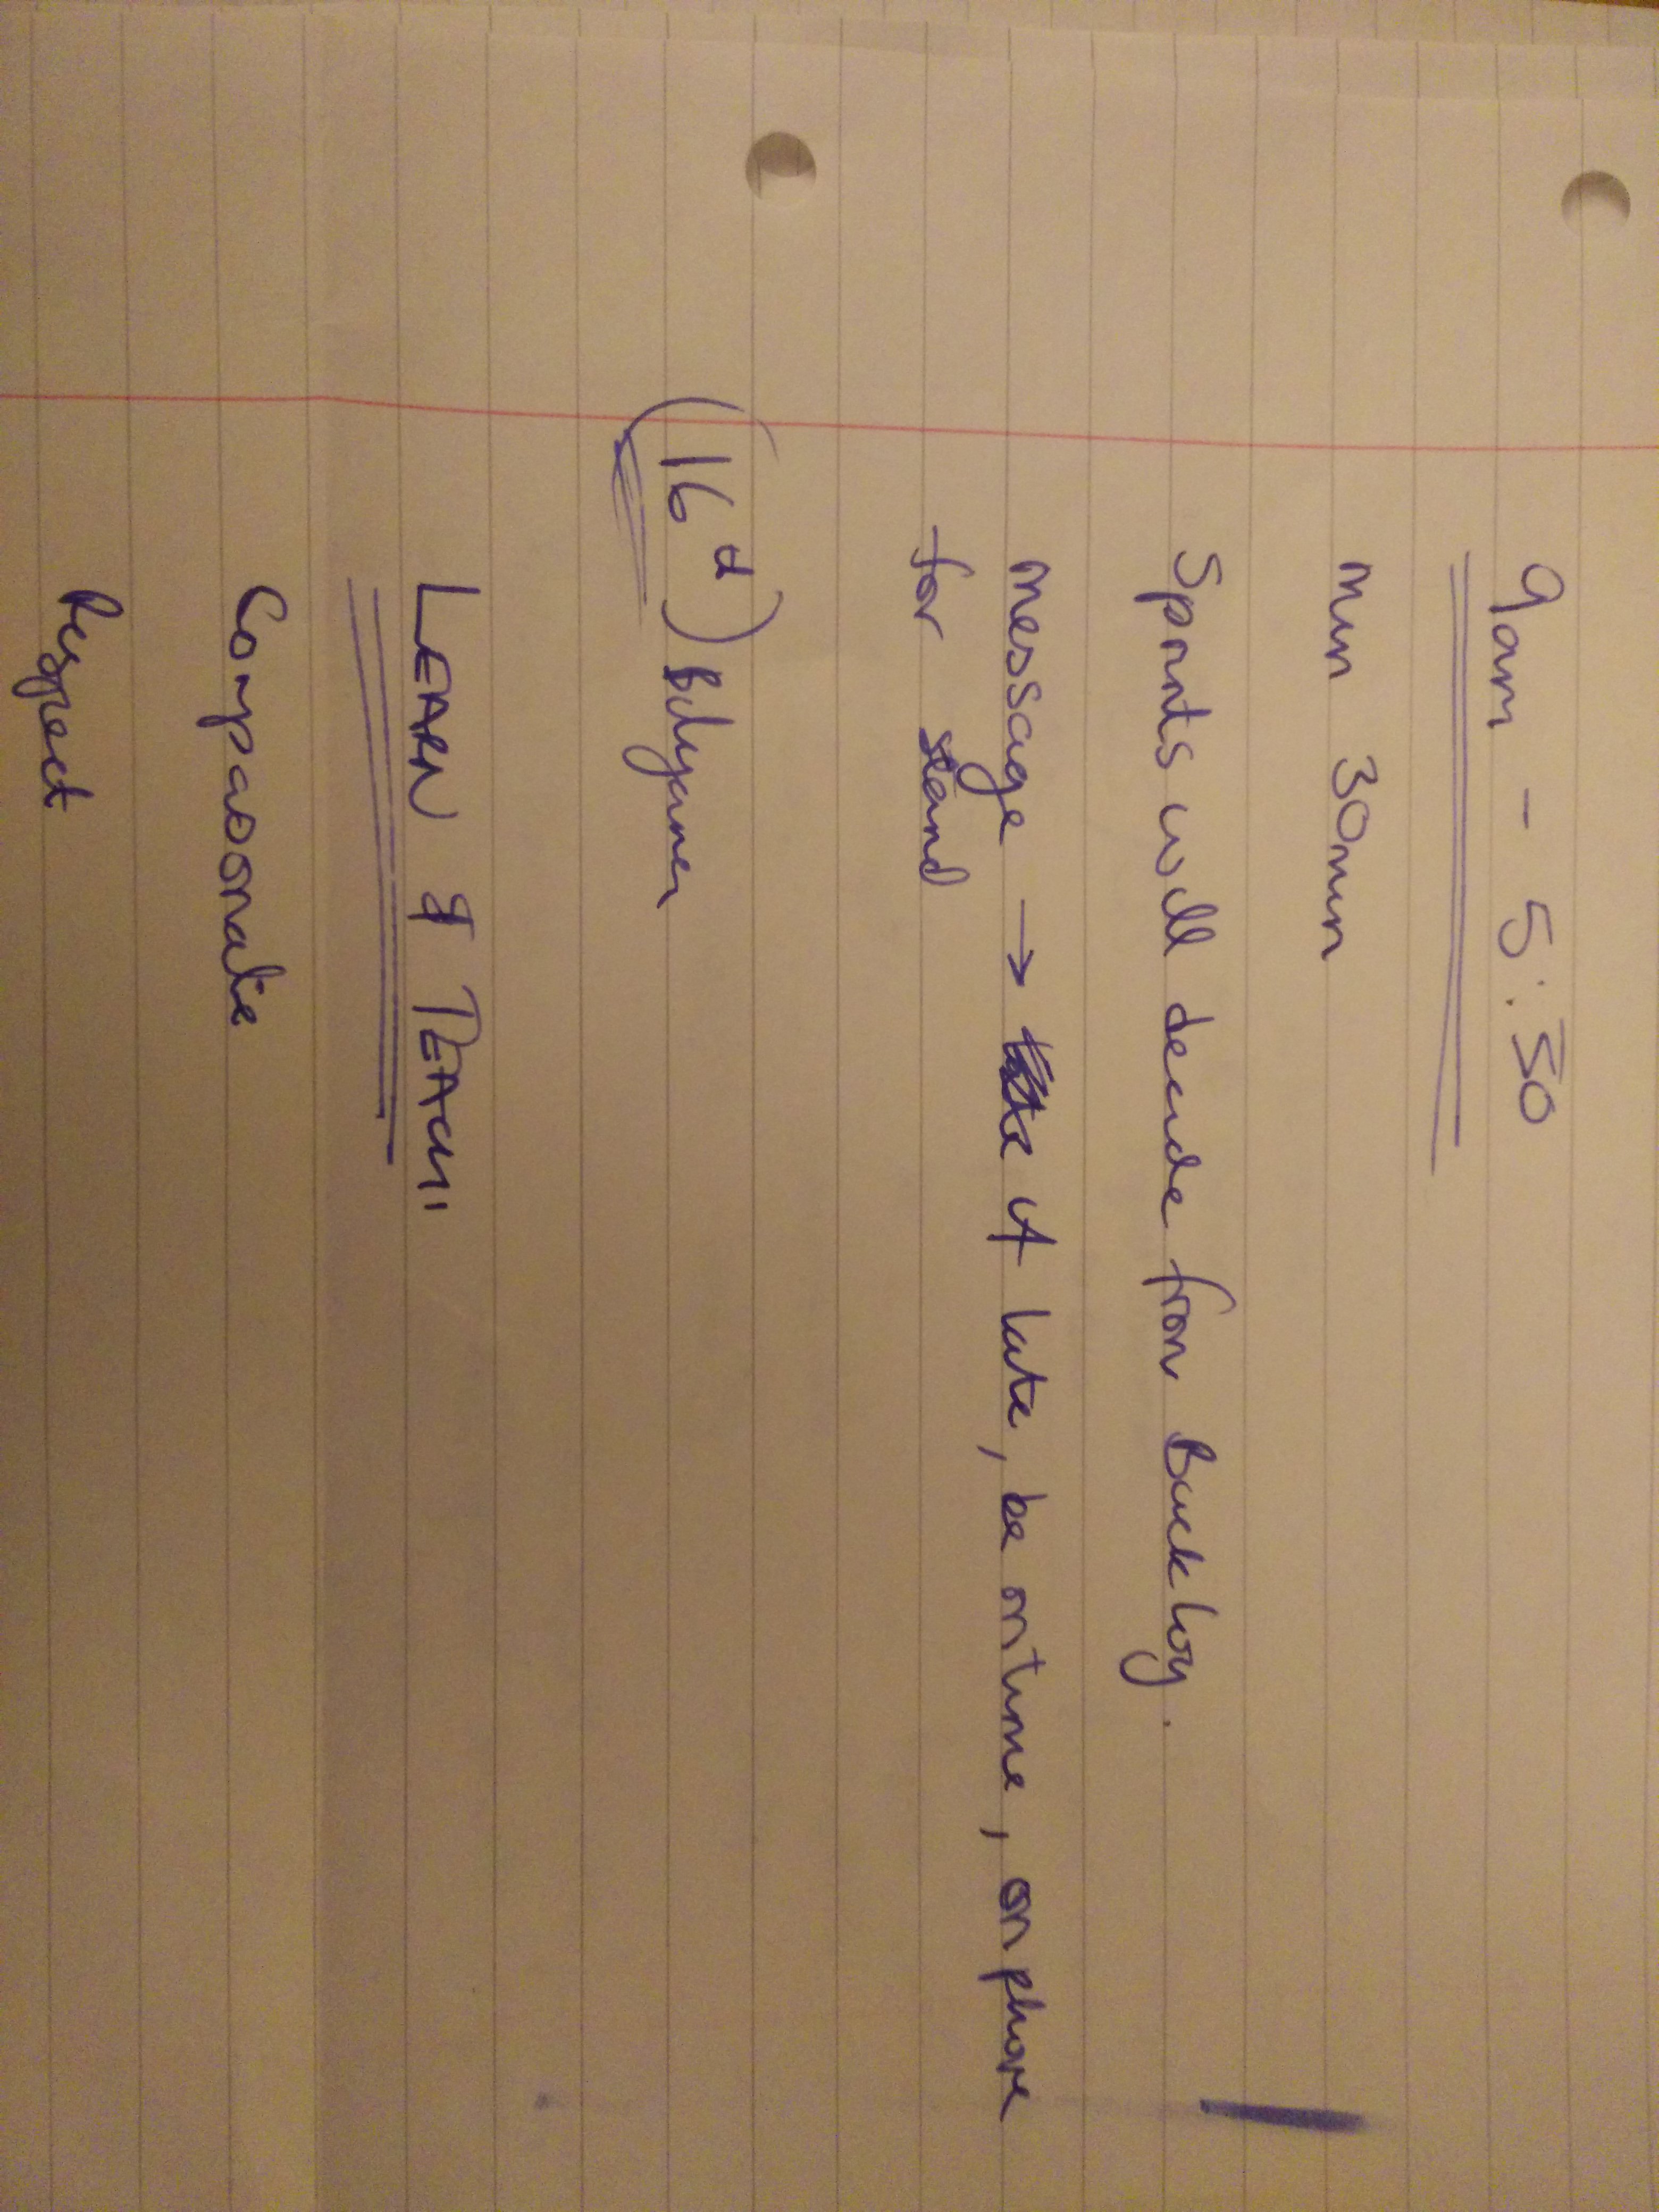 9am - 5:30
Min 30min
Sprints will decide from Backlog.
message → if late, be ontime, on phone
for stand
(16th)
LEARN & TEACH
Compassionate
Respect